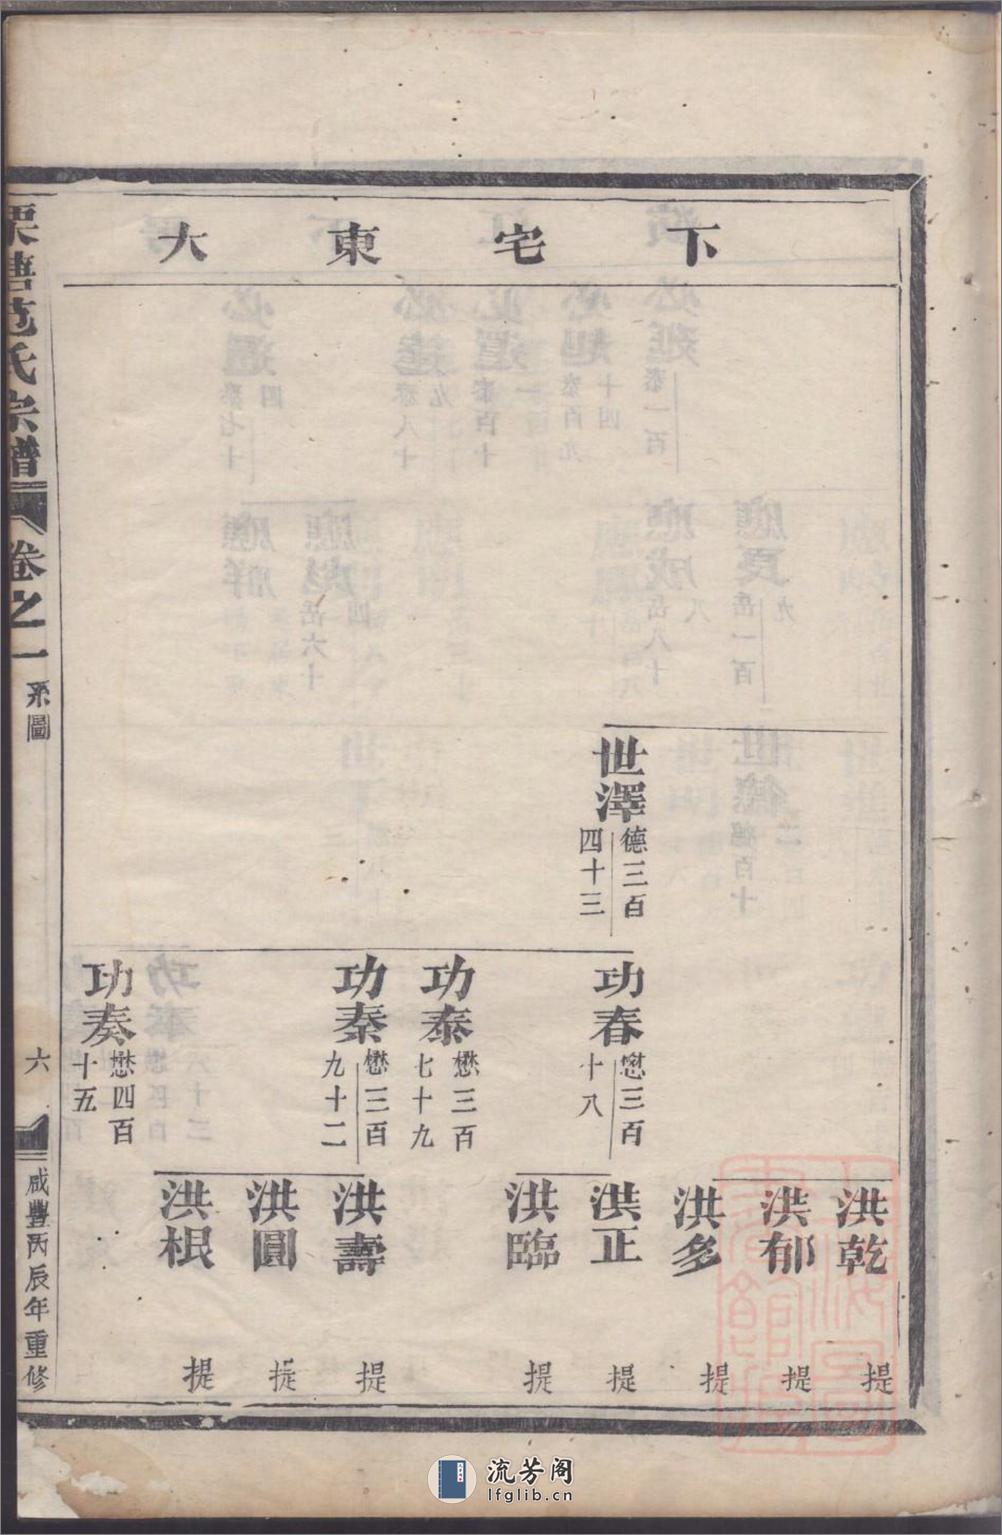 下宅東大
世澤
德三百
四十三
功春
懋三百
十八
功泰
懋三百
七十九
功秦
懋三百
九十二
功奏
懋四百
十五
洪乾 提
洪郁 提
洪多 提
洪正 提
洪臨 提
洪壽 提
洪圓 提
洪根 提
栗塘范氏宗譜
卷之一
系圖
六
咸豐丙辰年重修
流芳阁
lfglib.cn